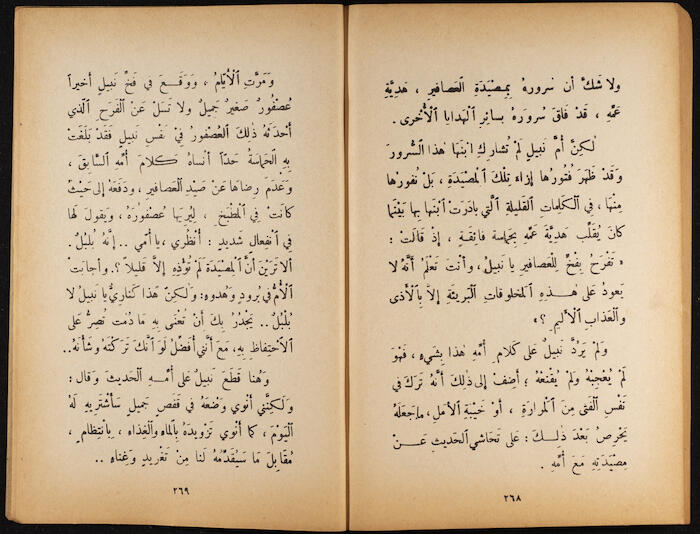 ولا شَكَّ أن سرورهُ بِمِصْيَدَةِ العَصافيرِ ، هَدِيَّةِ
عَمِّهِ ، قَدْ فاقَ سُرورَهُ بِسائِرِ الهَدايا الأُخْرى .
لٰكِنَّ أُمَّ نَبيل لَمْ تُشارِكِ ابْنَها هٰذا السُّرورَ
وَقَدْ ظَهَرَ فُتورُها إزاءَ تِلْكَ المِصْيَدَةِ ، بَلْ نُفورُها
مِنْها ، في الكَلِماتِ القَليلةِ الَّتي بادَرَتِ ابْنَها بها بَيْنَما
كانَ يُقَلِّبُ هَدِيَّةَ عَمِّهِ بِحَماسة فائقَةٍ ، إذ قالَتْ :
« تَفْرَحُ بِفَخٍّ لِلْعَصافيرِ يا نَبيلُ ، وأنتَ تَعْلَمُ أنَّهُ لا
يَعودُ على هٰذِهِ المخلوقاتِ البَريئَةِ إلاَّ بِالأَذى
والعَذابِ الأليمِ ؟ »
وَلَمْ يَرُدَّ نَبيلٌ عَلى كلامِ أُمِّهِ هٰذا بِشَيءٍ ، فَهُوَ
لَمْ يُعْجِبْهُ وَلَمْ يُقْنِعْهُ ؛ أَضِفْ إلى ذٰلِكَ أنَّهُ تَرَكَ في
نَفْسِ الفَتى مِنَ المَرارَةِ ، أوْ خَيْبَةِ الأمَلِ ، ما جَعَلَهُ
يَحْرِصُ بَعْدَ ذٰلِكَ : على تَحاشي الحَديثِ عَنْ
مِصْيَدَتِهِ مَعَ أُمِّهِ .
٢٦٨
وَمَرَّتِ الأيّامُ ، وَوَقَعَ في فَخِّ نَبيل أخيراً
عُصْفورٌ صَغيرٌ جَميلٌ ولا تَسَلْ عَنْ الفَرَحِ الَّذي
أحْدَثَهُ ذٰلِكَ العُصْفورُ فيْ نَفْسِ نَبيلٍ فَقَدْ بَلَغَتْ
بِهِ الحَماسَةُ حَدّاً أنْساهُ كَلامَ أُمِّهِ السّابِقَ ،
وَعَدَمَ رِضاها عَنْ صَيْدِ العَصافيرِ ، وَدَفَعَهُ إلى حَيْثُ
كانَتْ في المَطْبَخِ ، لِيُرِيَها عُصْفورَهُ ، وَيَقولَ لَها
في انْفِعالٍ شَديدٍ : أُنْظُري ، يا أُمّي .. إنَّهُ بُلْبُلٌ .
ألا تَرَيْنَ أنَّ المِصْيَدَةَ لَمْ تُؤْذِهِ إلاّ قَليلاً ؟. وأجابَتْ
الأُمُّ في بُرودٍ وَهُدوءٍ : ولٰكِنَّ هٰذا كَنارِيٌّ يا نَبيلُ لا
بُلْبُلٌ .. يَجْدُرُ بِكَ أنْ تَعْتَني بِهِ ما دُمْتَ تُصِرُّ على
الاحْتِفاظِ بِهِ، مَعَ أنَّني أُفَضِّلُ لَوْ أنَّكَ تَرَكْتَهُ وَشَأْنَهُ..
وَهُنا قَطَعَ نَبيلٌ على أُمِّهِ الحَديثَ وَقال :
وَلكِنَّني أنْوي وَضْعَهُ في قَفَصٍ جَميلٍ سأشْتَريهِ لَهُ
اليَوْمَ ، كما أنْوي تَزْويدَهُ بِالماءِ والغِذاءِ ، بِانْتِظامٍ ،
مُقابِلَ ما سَيُقَدِّمُهُ لَنا مِنْ تَغْريدٍ وَغِناءٍ ..
٢٦٩